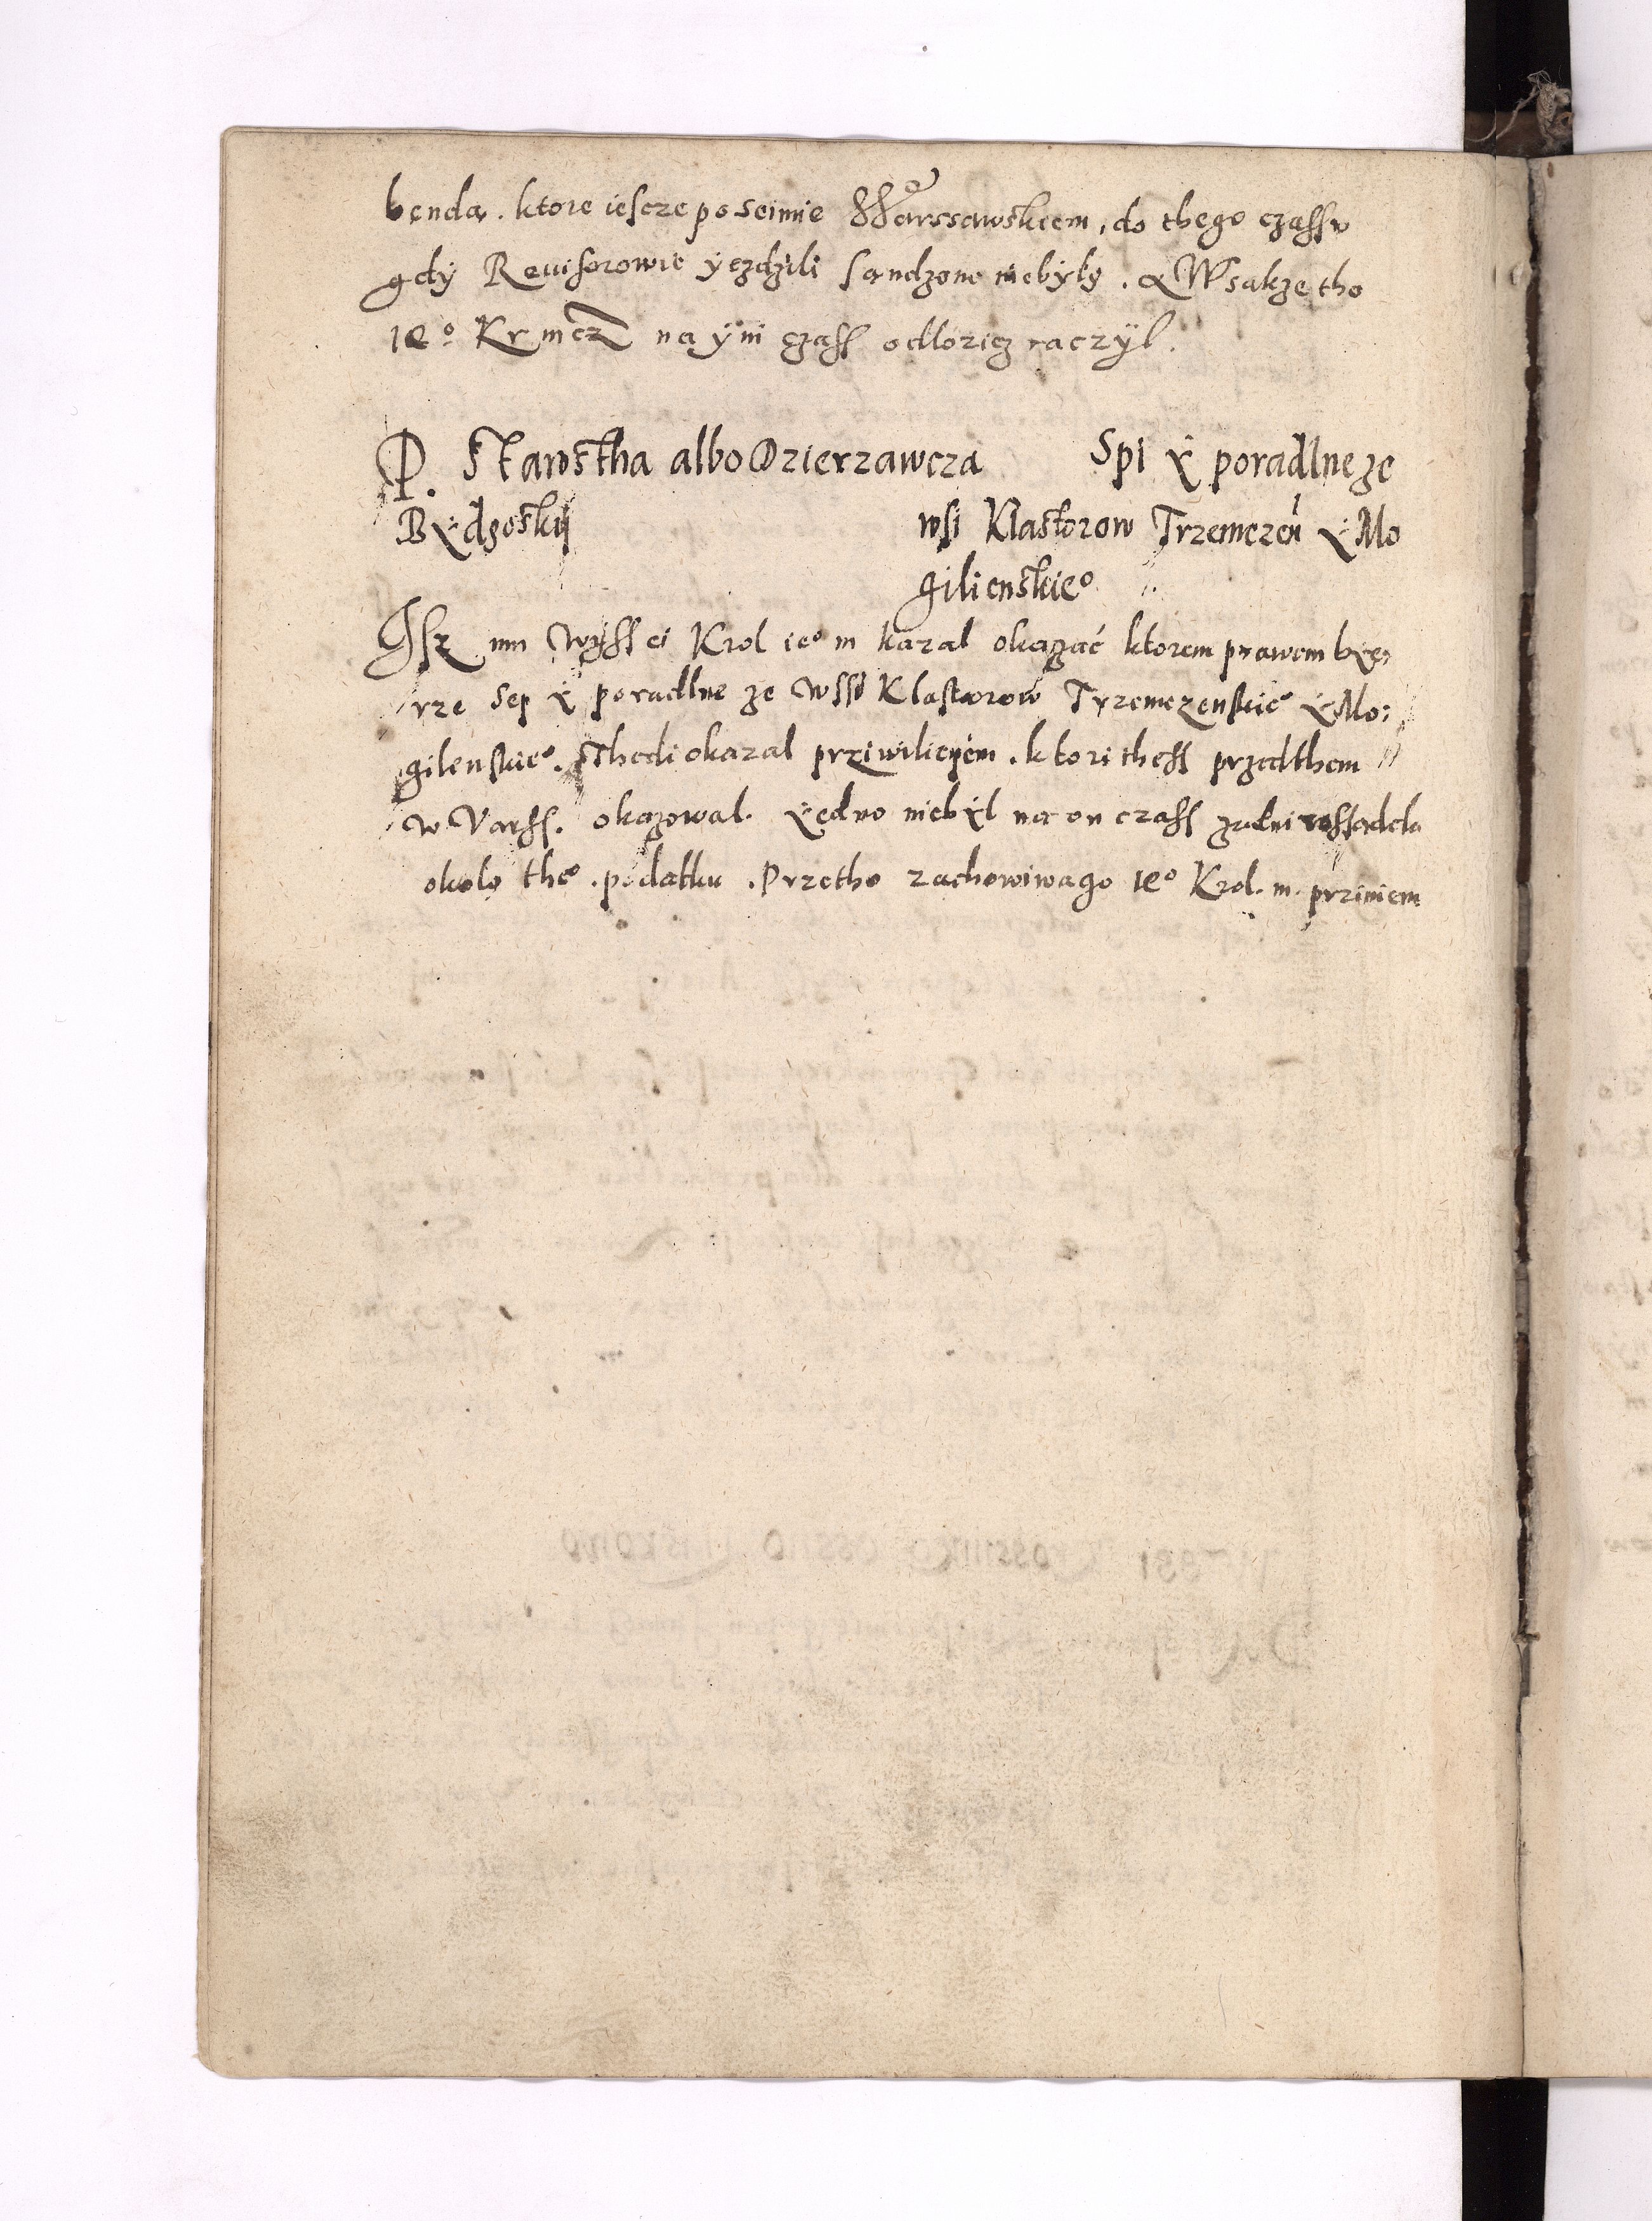 benda. ktore iescze po seimie Warssawskiem, do thego czassu
gdÿ Reuisorowie ÿezdzili sandzone niebyłÿ. Wsakze tho
ieº Kr mcz na ÿni czass odloricz raczÿl.
P. Starostha albo Dzierzawcza
Bÿdgoskij
Spi ÿ poradlne ze
wsi Klastorow Trzemczen ÿ Mo
gilienskieº
Isz mu Wÿssei Krol ieº m kazal okazać ktorem prawem bÿe
rze sep ÿ poradlne ze wssi Klastorow Trzemczenskieº ÿ Mo:
gilenskieº. Thedi okazal prziwiliejem. ktori thess przedthem
w Varss. okazowal. ÿedno niebÿl na on czass zadni rossadek
okolo theº. podatku. Przetho zachowiwa go ieº Krol. m. prziniem